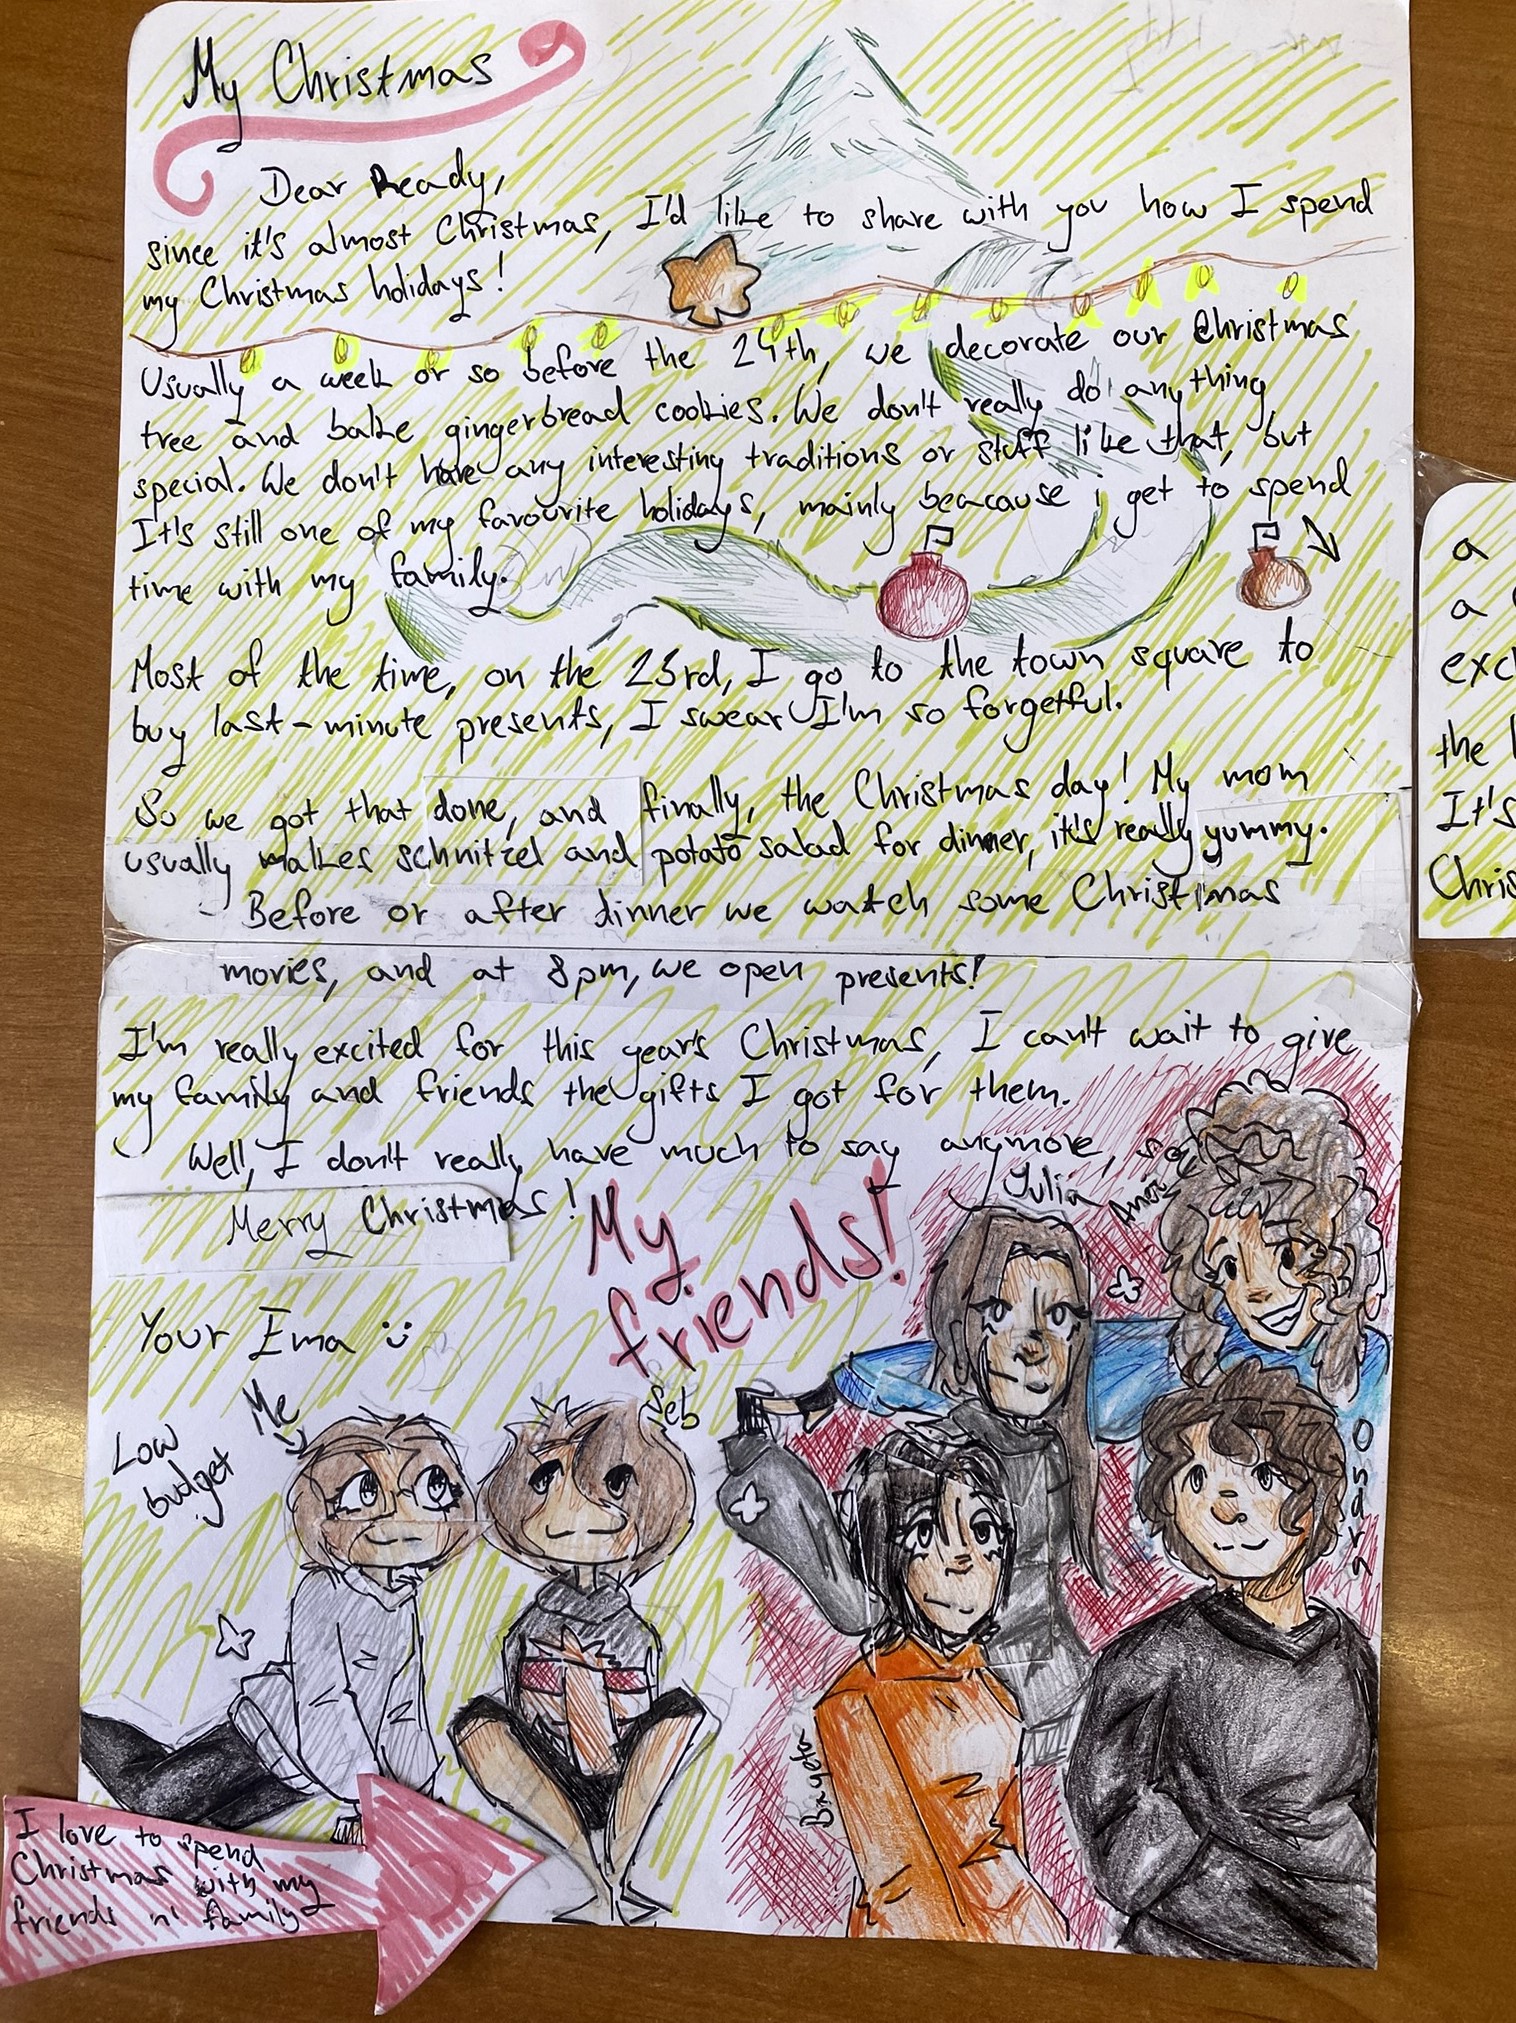 My Christmas
Dear Ready,
since it's almost Christmas, I'd like to share with you how I spend
my Christmas holidays!
Usually a week or so before the 24th, we decorate our Christmas
tree and bake gingerbread cookies. We don't really do anything
special. We don't have any interesting traditions or stuff like that, but
It's still one of my favourite holidays, mainly beacause i get to spend
time with my family.
Most of the time, on the 23rd, I go to the town square to
buy last-minute presents, I swear I'm so forgetful.
So we got that done, and finally, the Christmas day! My mom
usually makes schnitzel and potato salad for dinner, it's really yummy.
Before or after dinner we watch some Christmas
movies, and at 8pm, we open presents!
I'm really excited for this year's Christmas, I can't wait to give
my family and friends the gifts I got for them.
Well, I don't really have much to say anymore, so
Merry Christmas!
My
friends!
Your Ema :)
Low
budget
Me
Seb
Yulia
Ondra
I love to spend
Christmas with my
friends n' family
a
a
exc
the
It's
Chris